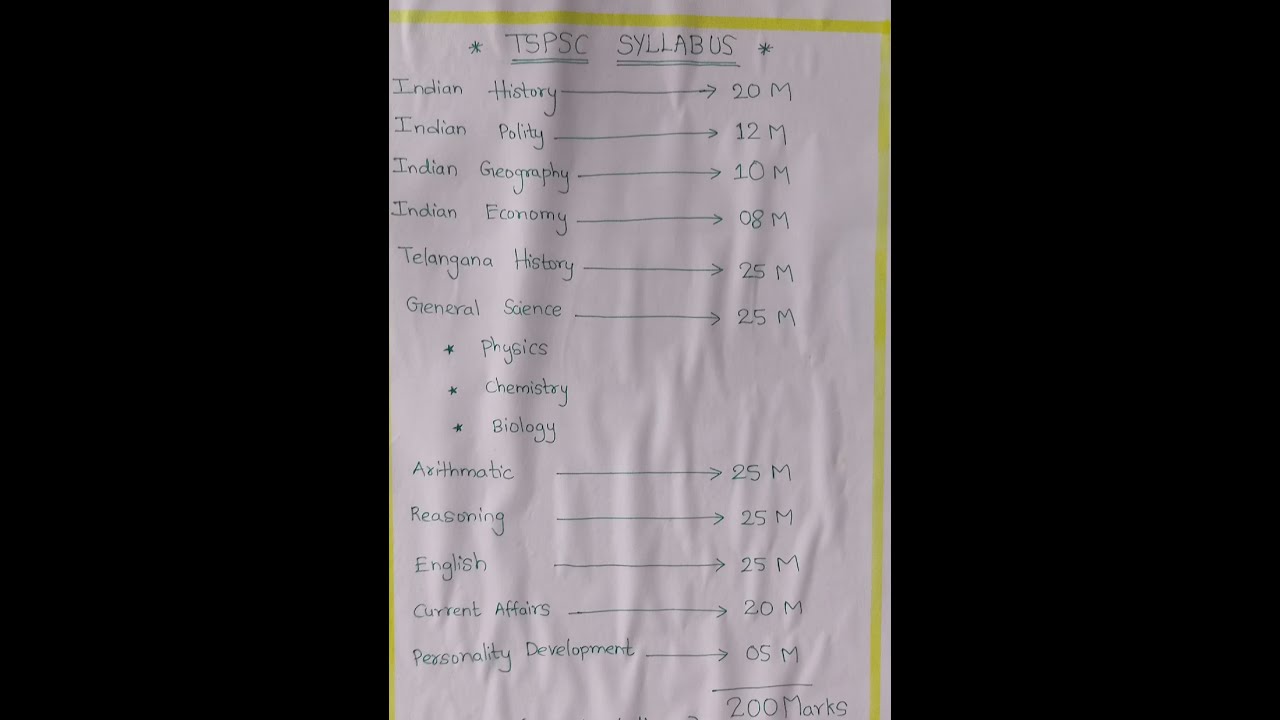 * TSPSC SYLLABUS *
Indian History → 20 M
Indian Polity → 12 M
Indian Geography → 10 M
Indian Economy → 08 M
Telangana History → 25 M
General Science → 25 M
* Physics
* Chemistry
* Biology
Arithmatic → 25 M
Reasoning → 25 M
English → 25 M
Current Affairs → 20 M
Personality Development → 05 M
200 Marks